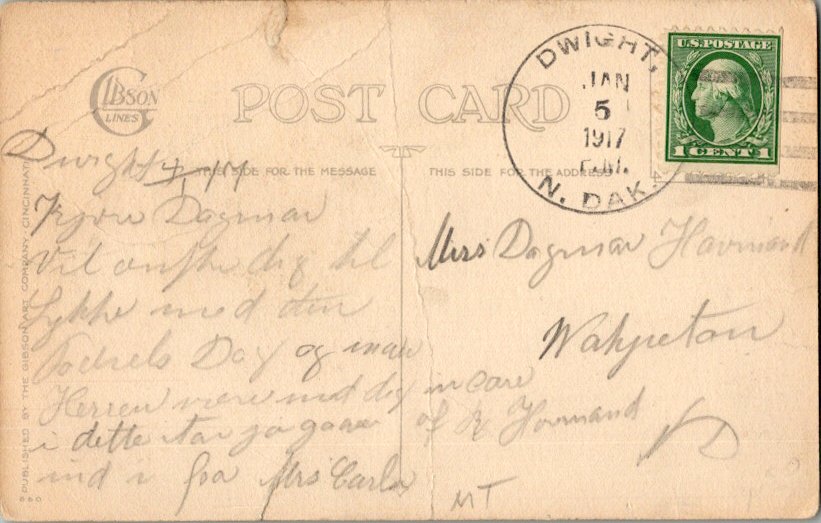 GIBSON
LINES
POST CARD
DWIGHT,
JAN
5
1917
P.M.
N. DAK.
U.S. POSTAGE
1 CENT 1
THIS SIDE FOR THE MESSAGE
THIS SIDE FOR THE ADDRESS
PUBLISHED BY THE GIBSON ART COMPANY, CINCINNATI
Dwight 17
Dagmar
Vil ønske dig til
Lykke med din
Fødsels Dag og maa
Herren være med dig
i dette Aar
ind i fra Mrs Carlo
Mrs Dagmar Hovmand
Wahpeton
in care
of Hovmand
ND
MT